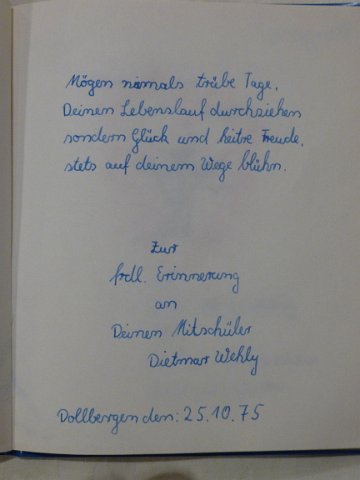 Mögen niemals trübe Tage,
Deinen Lebenslauf durchziehen
sondern Glück und heitre Freude,
stets auf deinem Wege blühn.
Zur
frdl. Erinnerung
an
Deinen Mitschüler
Dietmar Wehly
Dollbergen den: 25.10.75